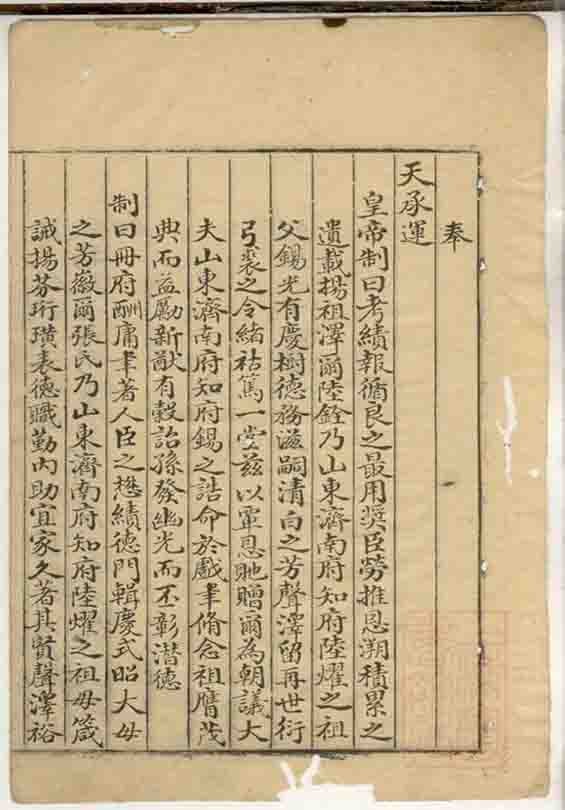 奉
天承運
皇帝制曰考績報循良之最用奨臣勞推恩溯積累之
遺載揚祖澤爾陸銓乃山東濟南府知府陸燿之祖
父錫光有慶樹德務滋嗣清白之芳聲澤留再世衍
弓裘之令緒祜篤一堂兹以覃恩貤贈爾為朝議大
夫山東濟南府知府錫之誥命於戲聿脩念祖膺茂
典而益勵新猷有穀詒孫發幽光而丕彰潜德
制曰冊府酬庸聿著人臣之懋績德門輯慶式昭大母
之芳徽爾張氏乃山東濟南府知府陸燿之祖母箴
誡揚芬珩璜表德職勤内助宜家久著其賢聲澤裕